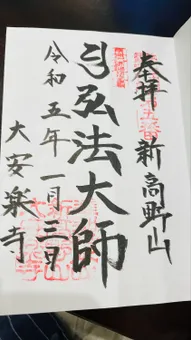 奉拝
新高野山
弘法大師
令和五年一月三日
大安楽寺